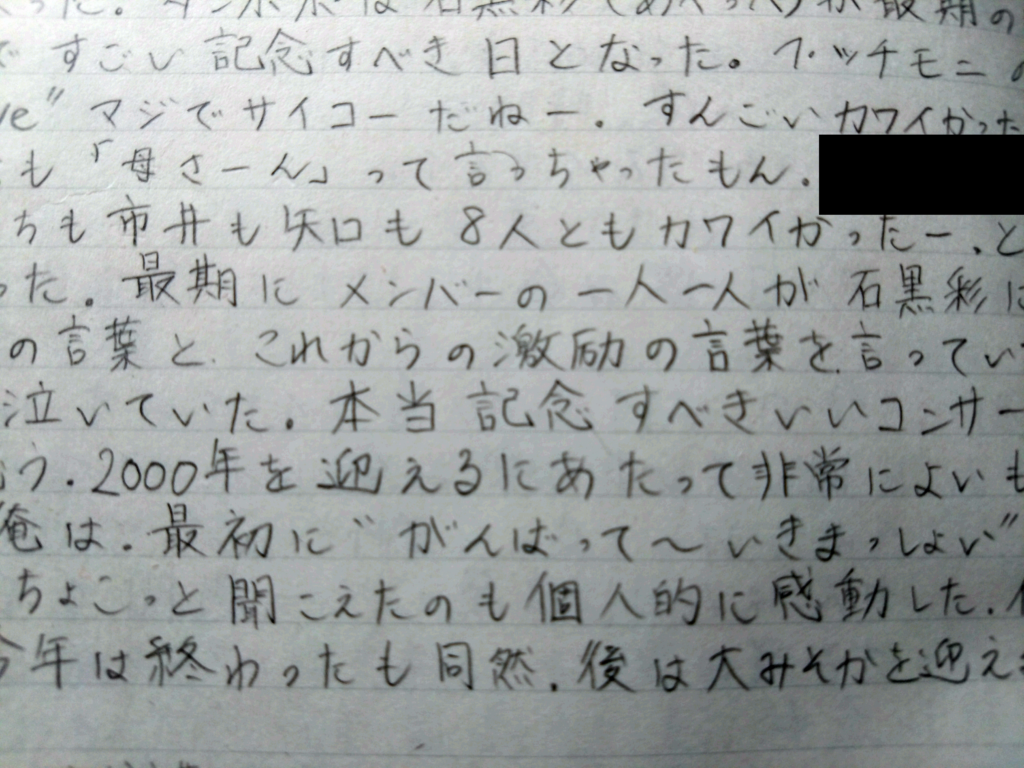 った。タンポポは石黒彩(あやっぺ)が最期の
ですごい記念すべき日となった。プッチモニの
ve" マジでサイコーだねー. すんごいカワイかった
も「母さーん」って言っちゃったもん.
ちも市井も矢口も8人ともカワイかったー.と
った。最期にメンバーの一人一人が石黒彩に
の言葉と.これからの激励の言葉を言ってい
泣いていた。本当記念すべきいいコンサー
う.2000年を迎えるにあたって非常によいも
俺は.最初に"がんばって〜いきまっしょい"
ちょこっと聞こえたのも個人的に感動した.
今年は終わったも同然.後は大みそかを迎え